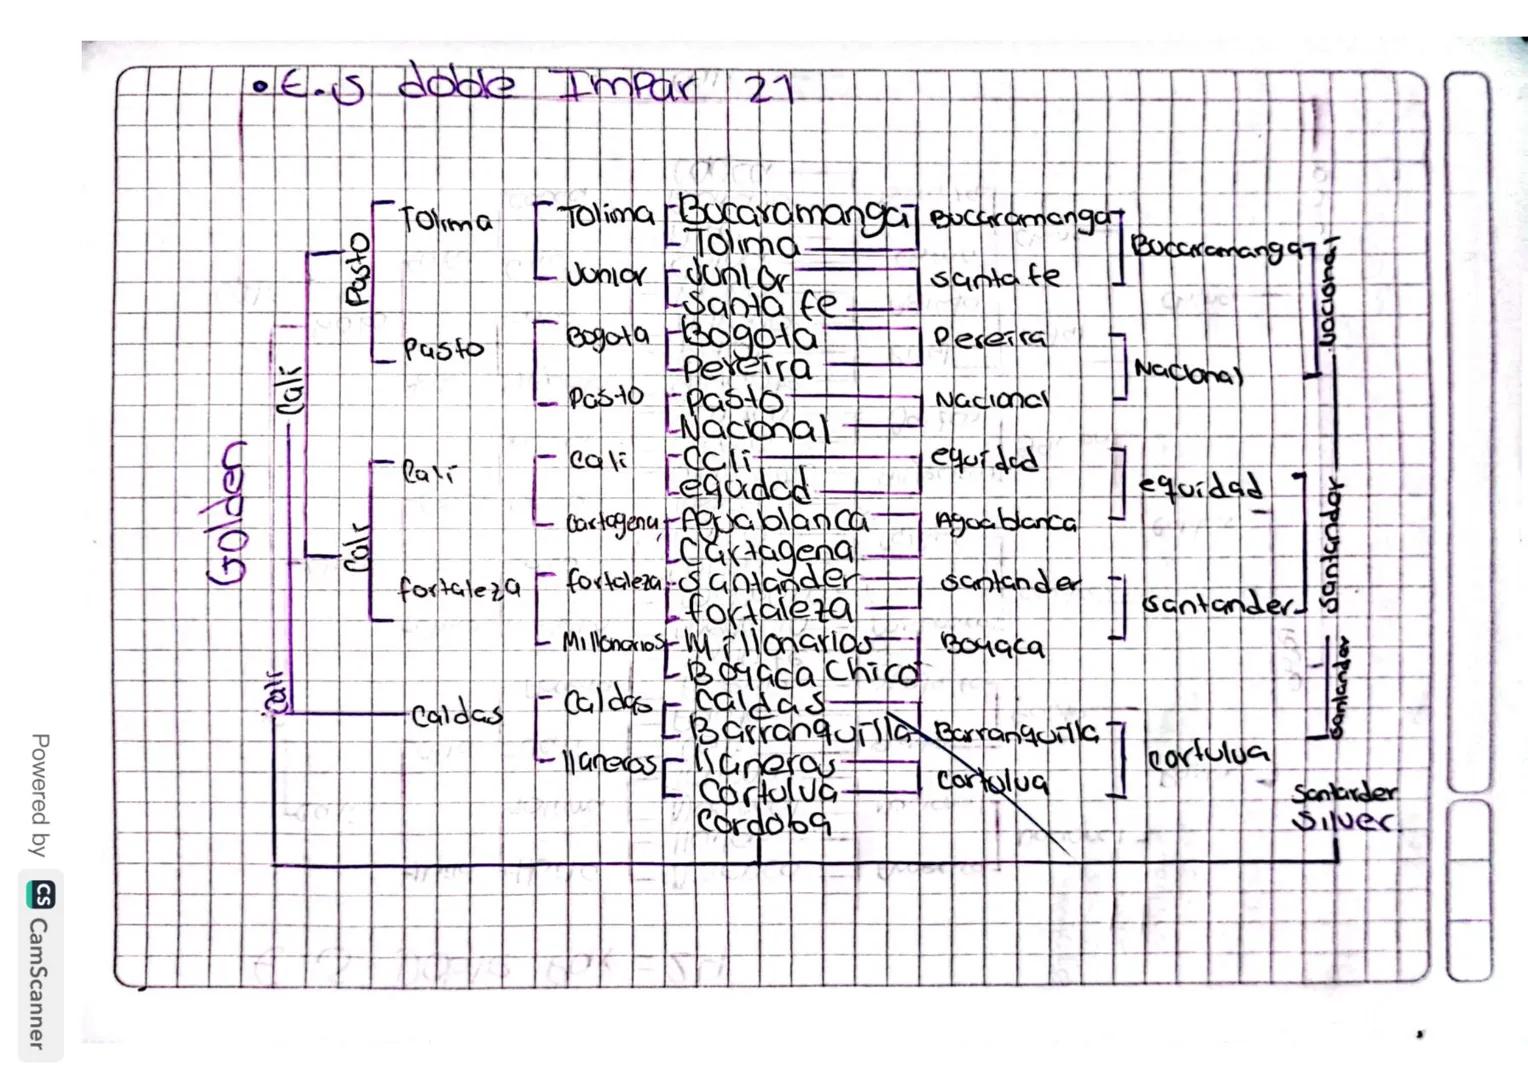 • E.S doble Impar 21
Tolima
Tolima
Bucaramanga
Bucaramanga
Tolima
Bucaramanga
Pasto
Junior
Junior
santa fe
Santa fe
Nacional
Pasto
Bogota
Bogota
Pereira
Pereira
Nacional
Pasto
Pasto
Nacional
Nacional
Cali
Golden
Cali
Cali
Cali
equidad
equidad
equidad
Cali
Cartagena
Aguablanca
Aguablanca
Cartagena
Santander
fortaleza
fortaleza
Santander
santander
santander
fortaleza
Millonarios
Millonarios
Boyaca
Boyaca Chico
Santander
Cali
Caldas
Caldas
Caldas
Barranquilla
Barranquilla
cortulua
llaneros
llaneros
Cortulua
Cortulua
Cordoba
Santander
Silver.
Powered by CS CamScanner